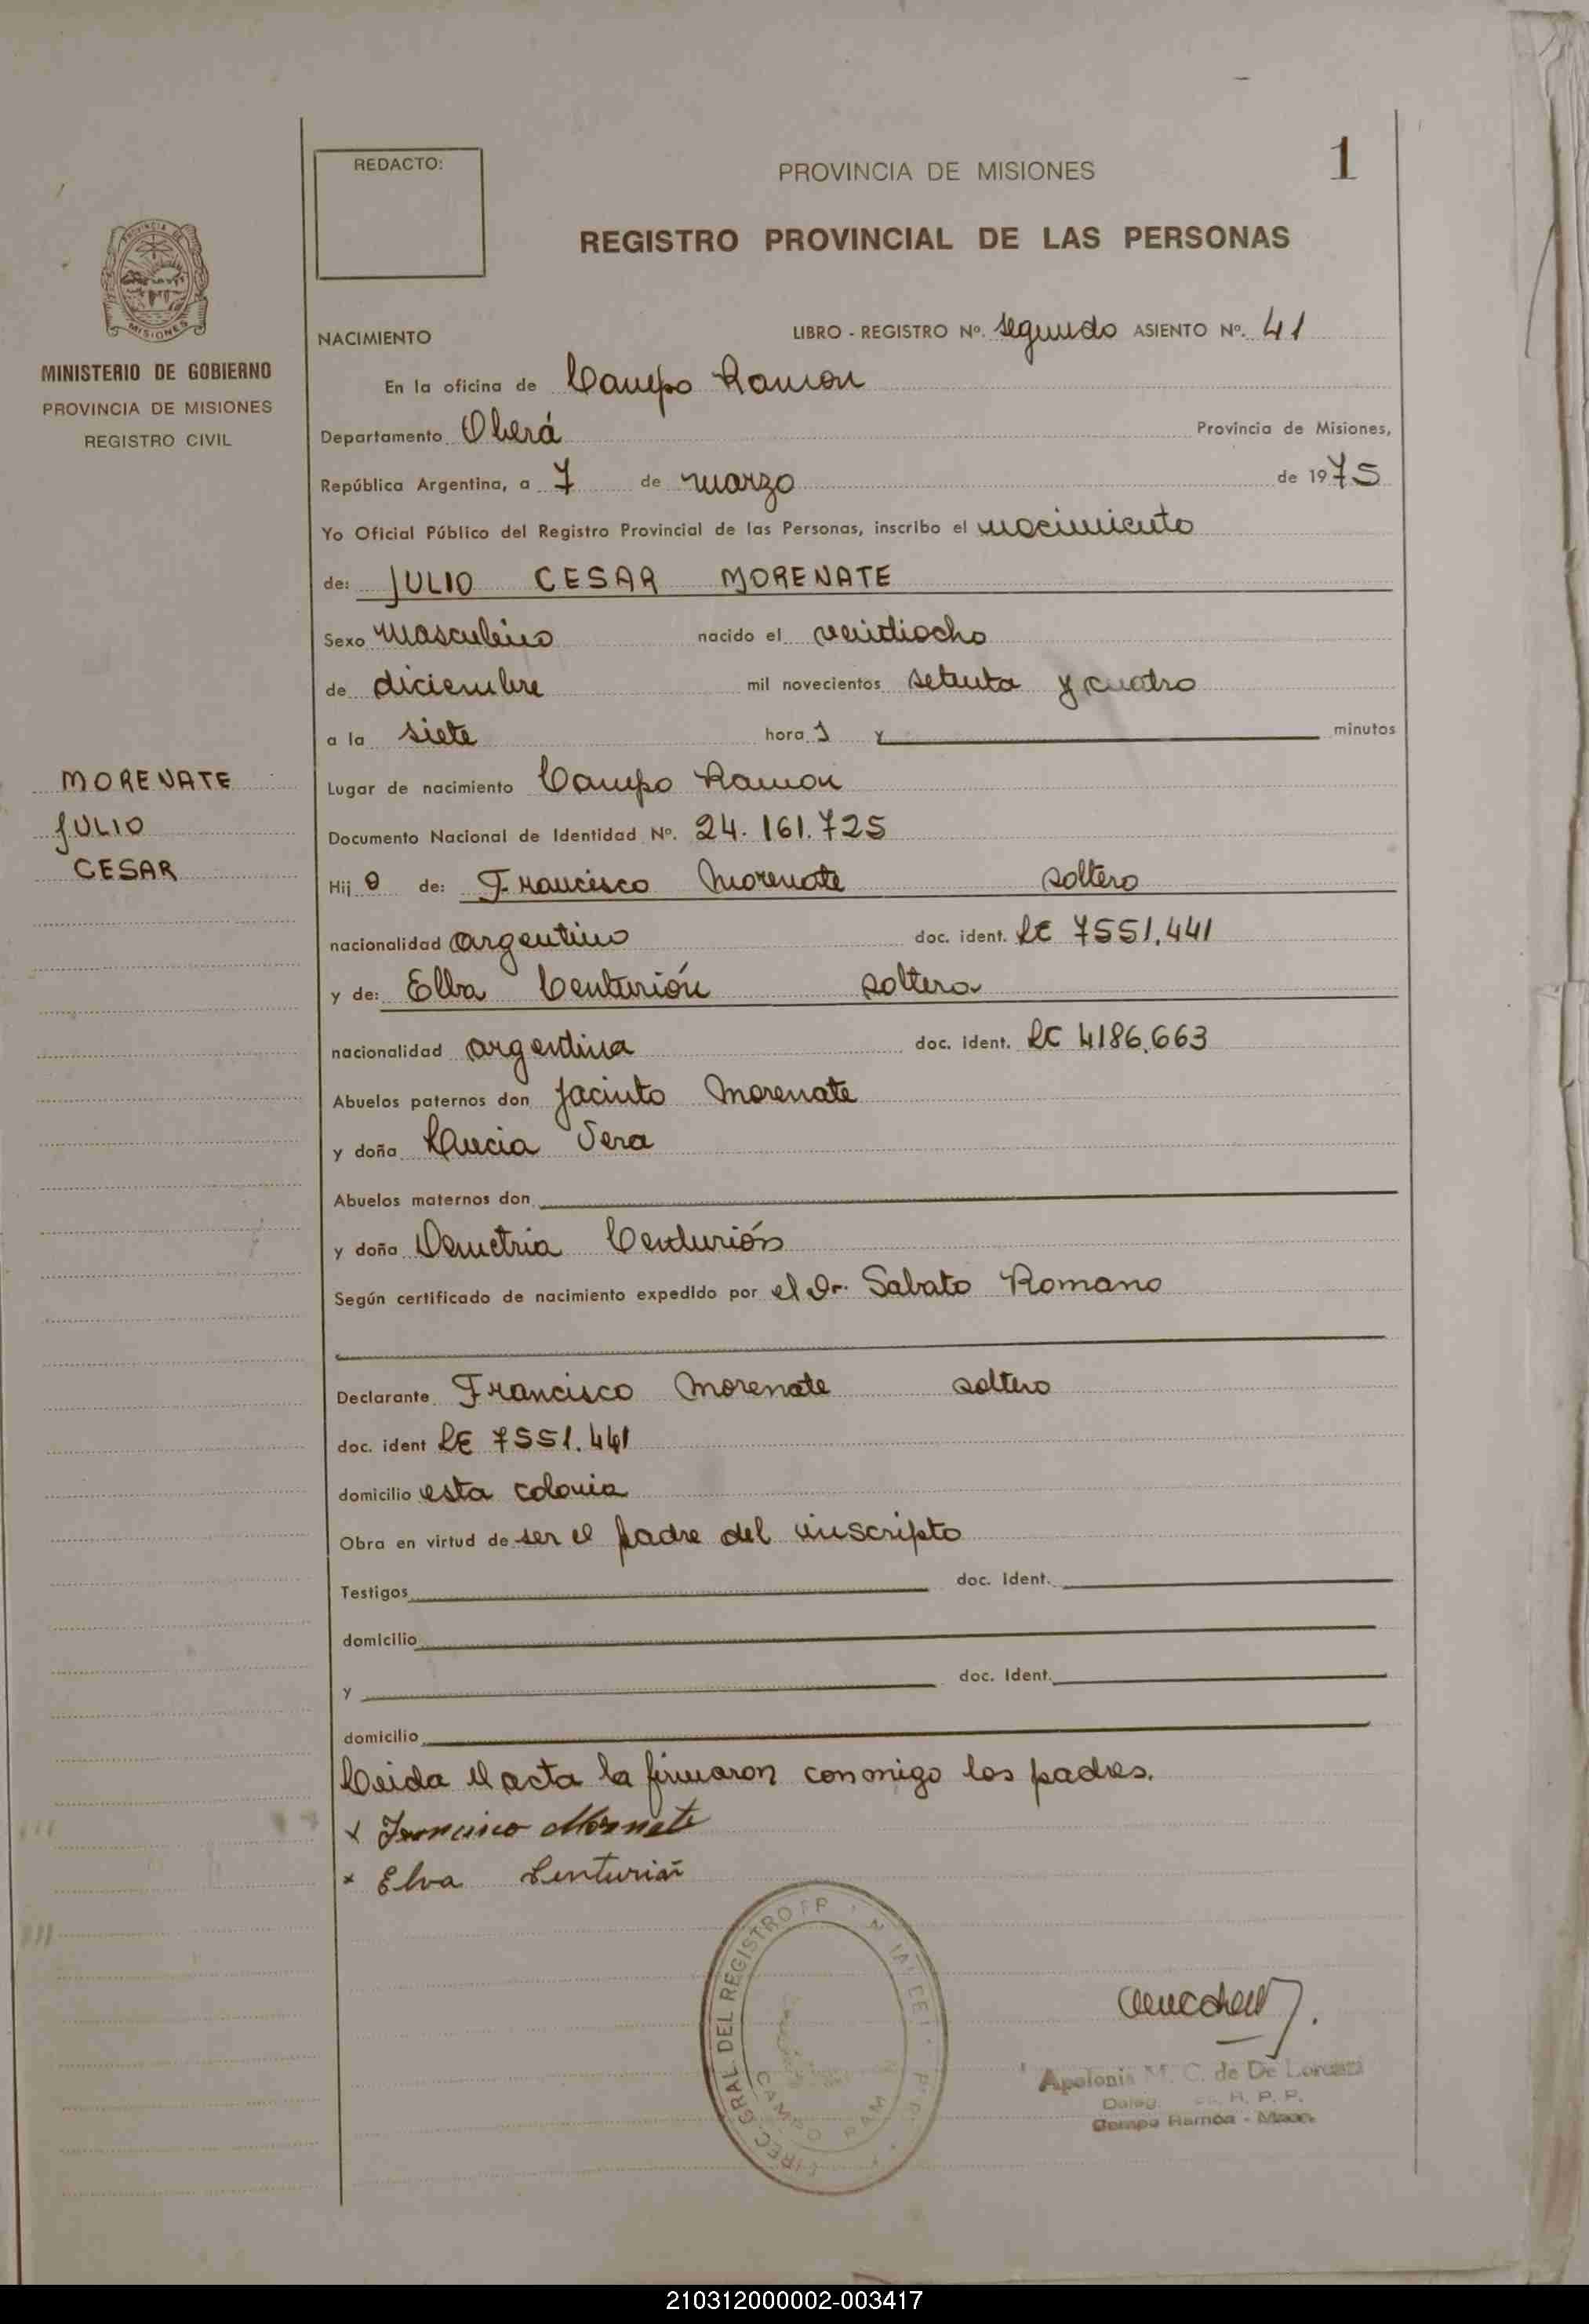 REDACTO:
PROVINCIA DE MISIONES
1
REGISTRO PROVINCIAL DE LAS PERSONAS
MISIONES
MINISTERIO DE GOBIERNO
PROVINCIA DE MISIONES
REGISTRO CIVIL
NACIMIENTO LIBRO - REGISTRO Nº. segundo ASIENTO Nº. 41
En la oficina de Campo Ramon
Departamento Oberá Provincia de Misiones,
República Argentina, a 7 de marzo de 1975
Yo Oficial Público del Registro Provincial de las Personas, inscribo el nacimiento
de: JULIO CESAR MORENATE
Sexo masculino nacido el veintiocho
de diciembre mil novecientos setenta y cuatro
a la siete hora s y minutos
MORENATE
JULIO
CESAR
Lugar de nacimiento Campo Ramon
Documento Nacional de Identidad Nº. 24.161.725
Hij o de: Francisco Morenate soltero
nacionalidad argentino doc. ident. LE 7551.441
y de: Elba Centurión soltera
nacionalidad argentina doc. ident. LC 4186.663
Abuelos paternos don Jacinto Morenate
y doña Lucia Vera
Abuelos maternos don
y doña Demetria Centurión
Según certificado de nacimiento expedido por el Dr. Sabato Romano
Declarante Francisco Morenate soltero
doc. ident LE 7551.441
domicilio esta colonia
Obra en virtud de ser el padre del inscripto
Testigos doc. Ident.
domicilio
y doc. Ident.
domicilio
Leida el acta la firmaron conmigo los padres.
x Francisco Morenate
x Elva Centurión
GRAL. DEL REGISTRO
CAMPO RAM
Apolonia M. C. de De Lorenzi
R. P. P.
Campo Ramón - Mnes.
210312000002-003417